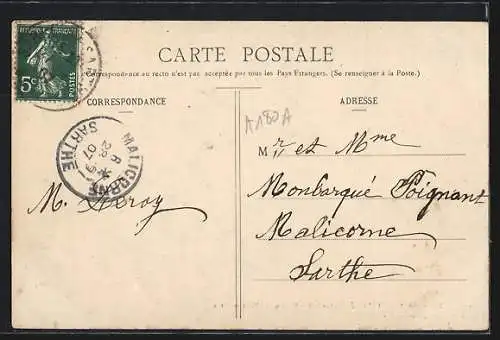 5c
POSTES
CARTE POSTALE
Correspondance au recto n'est pas acceptée par tous les Pays Étrangers. (Se renseigner à la Poste.)
CORRESPONDANCE
ADRESSE
A180A
MALICORNE
07
SARTHE
Mr et Mme
Monbarqué Poignant
Malicorne
Sarthe
M. Leroy